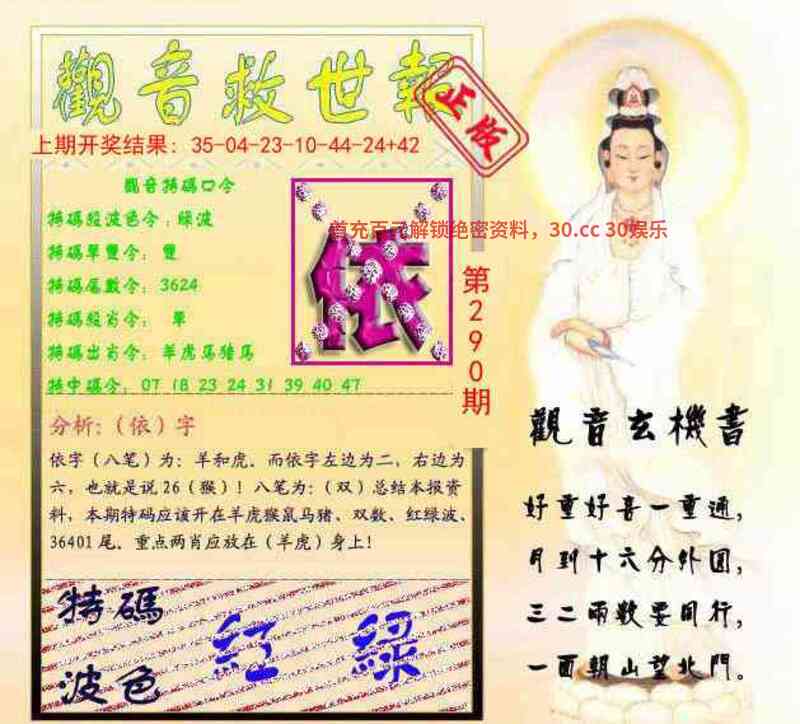 觀音救世報
正版
上期开奖结果：35-04-23-10-44-24+42
觀音特碼口令
特碼段波色令：綠波
特碼單雙令：雙
特碼尾數令：3624
特碼段肖令：單
特碼出肖令：羊虎馬猪馬
特中碼令：07 18 23 24 31 39 40 47
依
首充百元解锁绝密资料，30.cc 30娱乐
第290期
分析:（依）字
依字（八笔）为：羊和虎．而依字左边为二，右边为
六，也就是说26（猴）！八笔为：（双）总结本报资
料，本期特码应该开在羊虎猴鼠马猪、双数、红绿波、
36401尾．重点两肖应放在（羊虎）身上！
特碼
波色
紅 綠
觀音玄機書
好重好喜一重通，
月到十六分外圓，
三二兩數要同行，
一面朝山望北門。